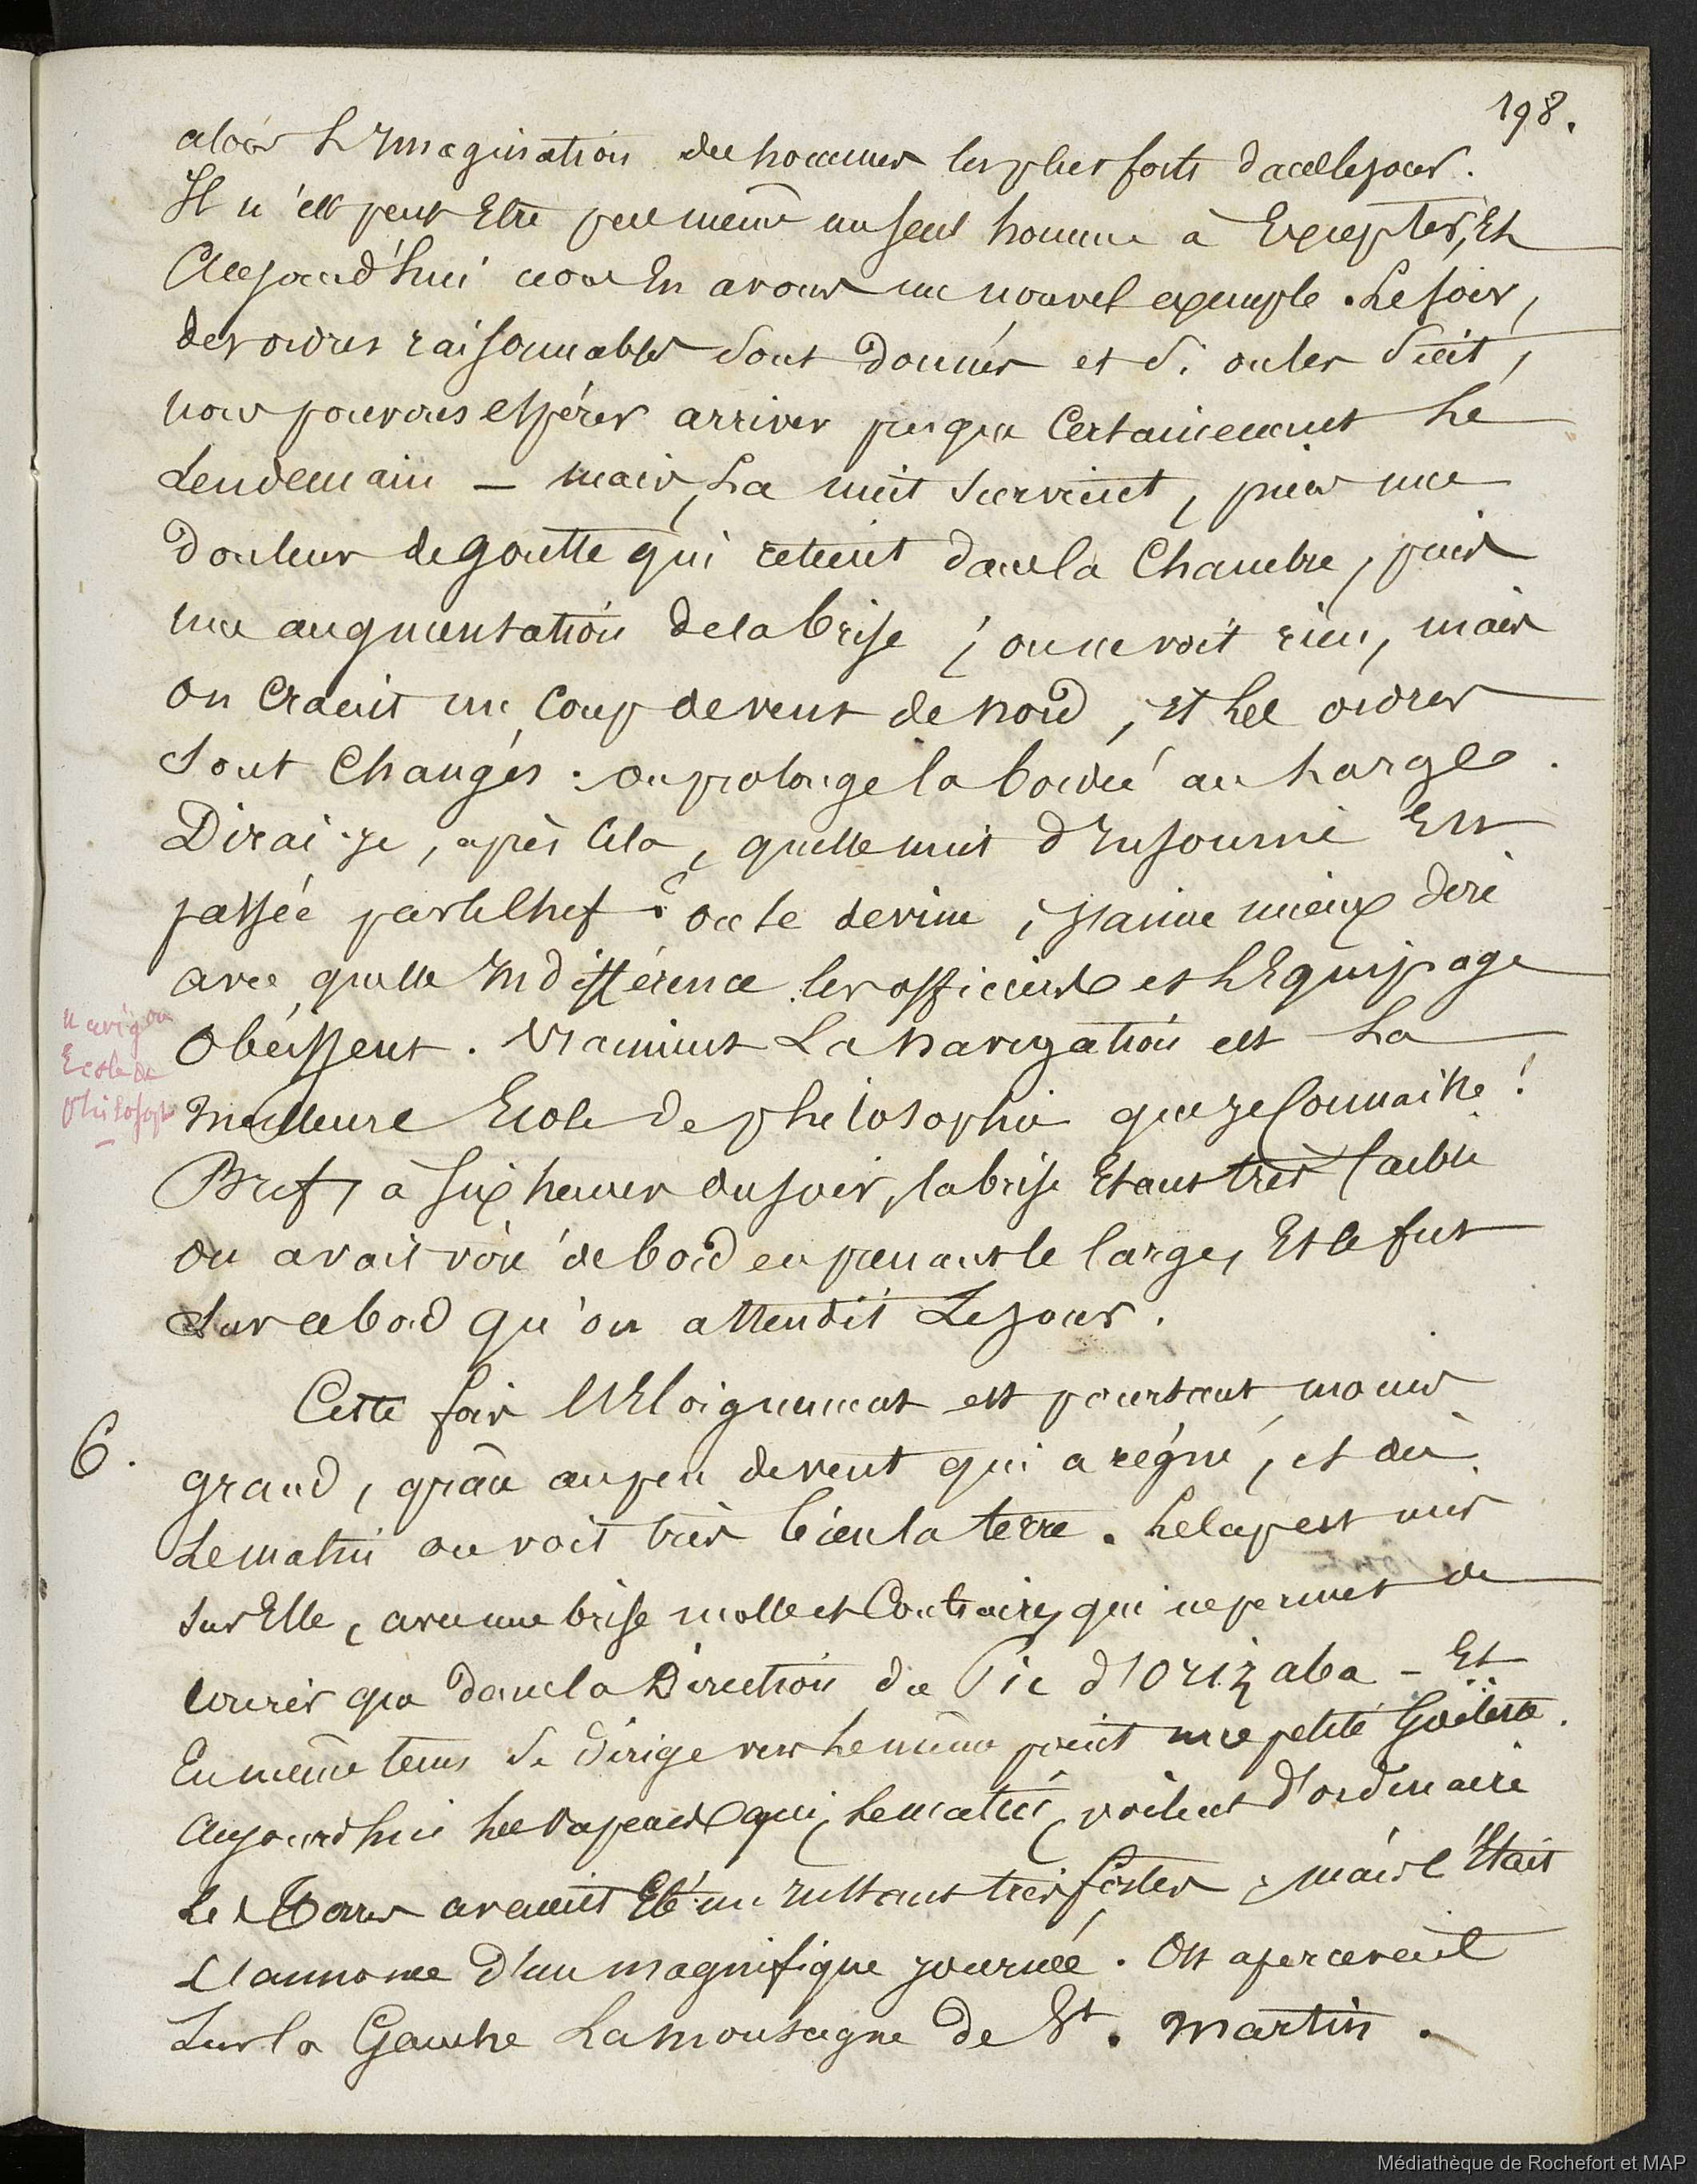 198.
alors L'Imagination des hommes les plus forts dans le jour.
Il n'est peut Etre pas même un seul homme à Excepter, Et
Aujourd'hui nous En avons un nouvel exemple. Le soir,
des ordres raisonnables sont donnés et si on les suit,
nous pouvons espérer arriver presque Certainement Le
Lendemain — mais, La nuit survient, puis une
douleur de goutte qui retient dans la Chambre, puis
une augmentation de la brise ; on ne voit rien, mais
on Craint un Coup de vent de nord, et Les ordres
sont Changés : on prolonge la bordée au Large.
Dirai-je, après Cela, quelle nuit d'Insomnie Est
passée par le Chef ? on le devine ; j'aime mieux dire
avec quelle Indifférence les officiers et L'Equipage
obéissent. Vraiment La navigation est La
meilleure Ecole de philosophie que je Connaisse !
Bref, à six heures du soir, la brise Etant très faible
on avait viré de bord en prenant le large, Et ce fut
sur ce bord qu'on attendit Le jour.
navigon
Ecole de
philosoph
6.
Cette fois L'Eloignement est pourtant moins
grand, grâce au peu de vent qui a régné, et dès
Le matin on voit très bien la terre. Le Cap est mis
sur Elle, avec une brise molle et Contraire, qui ne permet de
courir que dans la Direction du Pic d'Orizaba - Et
En même tems se dirige vers Le même point une petite Goëlette.
Aujourd'hui Les vapeurs qui, Le matin, voilent d'ordinaire
Le avaient Eté un Instant très fortes ; mais c'Etait
L'annonce d'une magnifique journée. On apercevait
sur la Gauche La montagne de St. Martin.
Médiathèque de Rochefort et MAP